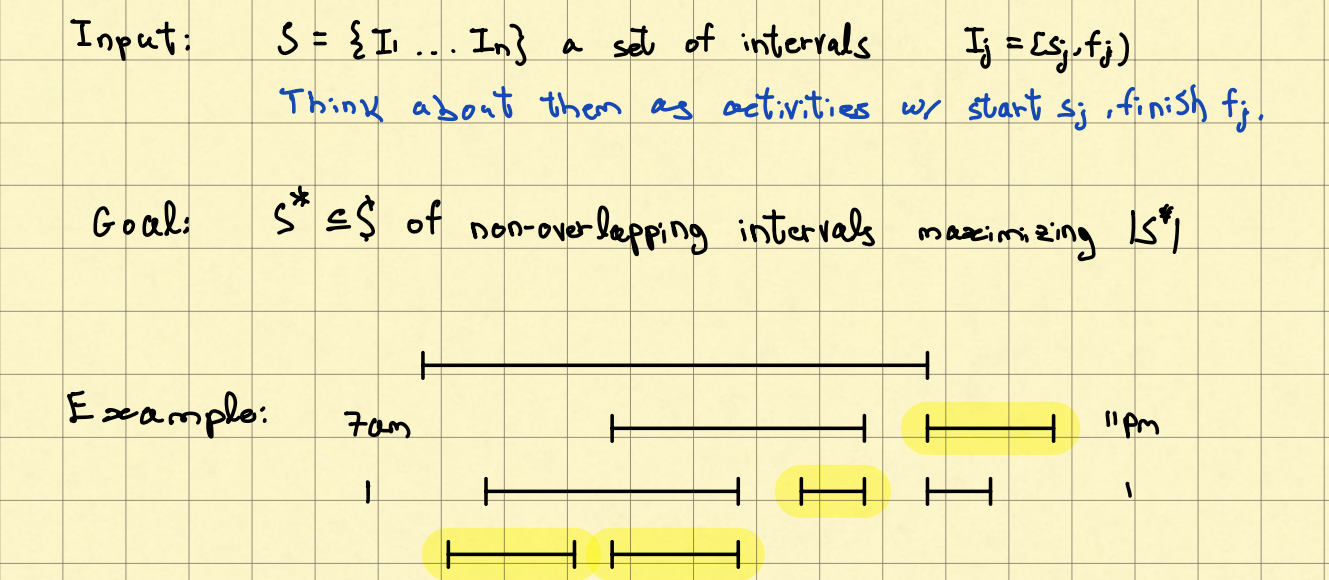 Input: S = {I₁ ... Iₙ} a set of intervals Iⱼ = [sⱼ, fⱼ)
Think about them as activities w/ start sⱼ, finish fⱼ.
Goal: S* ⊆ S of non-overlapping intervals maximizing |S*|
Example: 7am 11pm